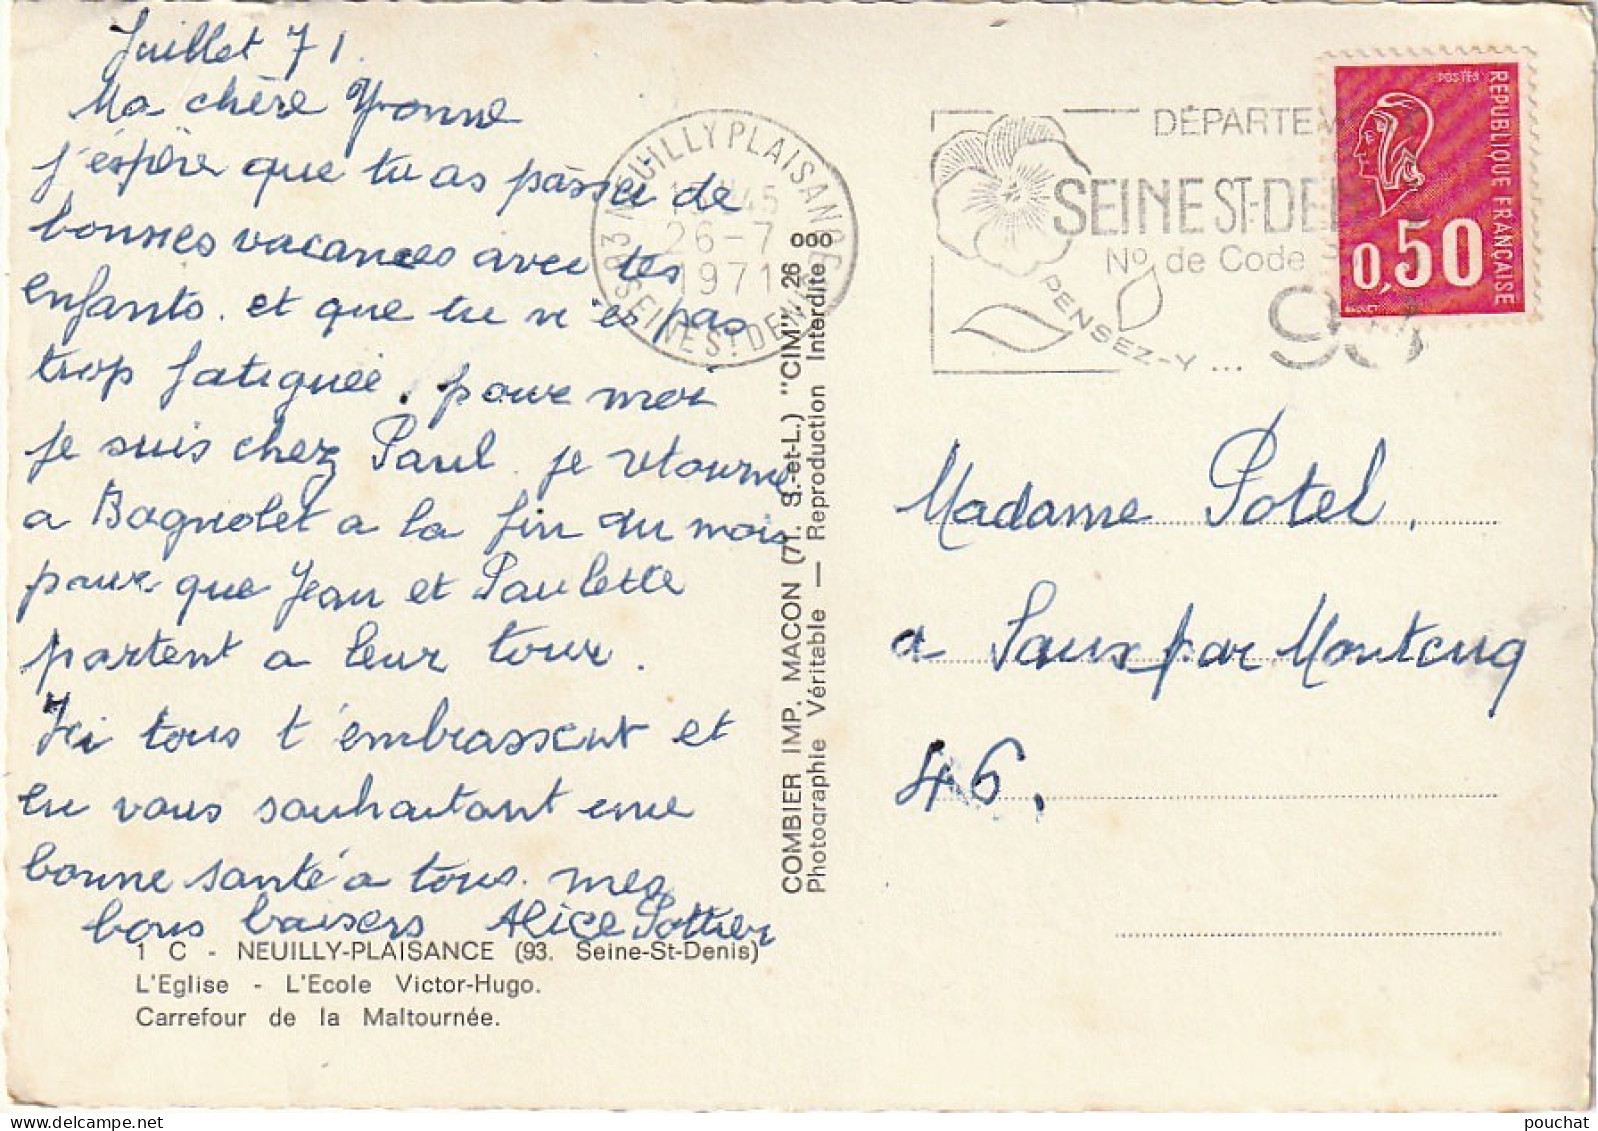 Juillet 71.
Ma chère Yvonne
j'espère que tu as passée de
bonnes vacances avec tes
enfants. et que tu n'es pas
trop fatiguée. pour moi
je suis chez Paul. je retourne
a Bagnolet a la fin du mois
pour que Jean et Paulette
partent a leur tour.
Ici tous t'embrassent et
en vous souhaitant une
bonne santé a tous. mes
bons baisers Alice Pottier
1 C - NEUILLY-PLAISANCE (93. Seine-St-Denis)
L'Eglise - L'Ecole Victor-Hugo.
Carrefour de la Maltournée.
COMBIER IMP. MACON (71. S.-et-L.) "CIM" 26 000
Photographie Véritable — Reproduction Interdite
93 NEUILLY PLAISANCE
45
26-7
1971
SEINE ST DENIS
DÉPARTEM
SEINE ST-DE
N° de Code
PENSEZ-Y...
93
POSTES
REPUBLIQUE FRANÇAISE
0,50
BEQUET
Madame Potel.
a Saux par Montcuq
46.
pouchat